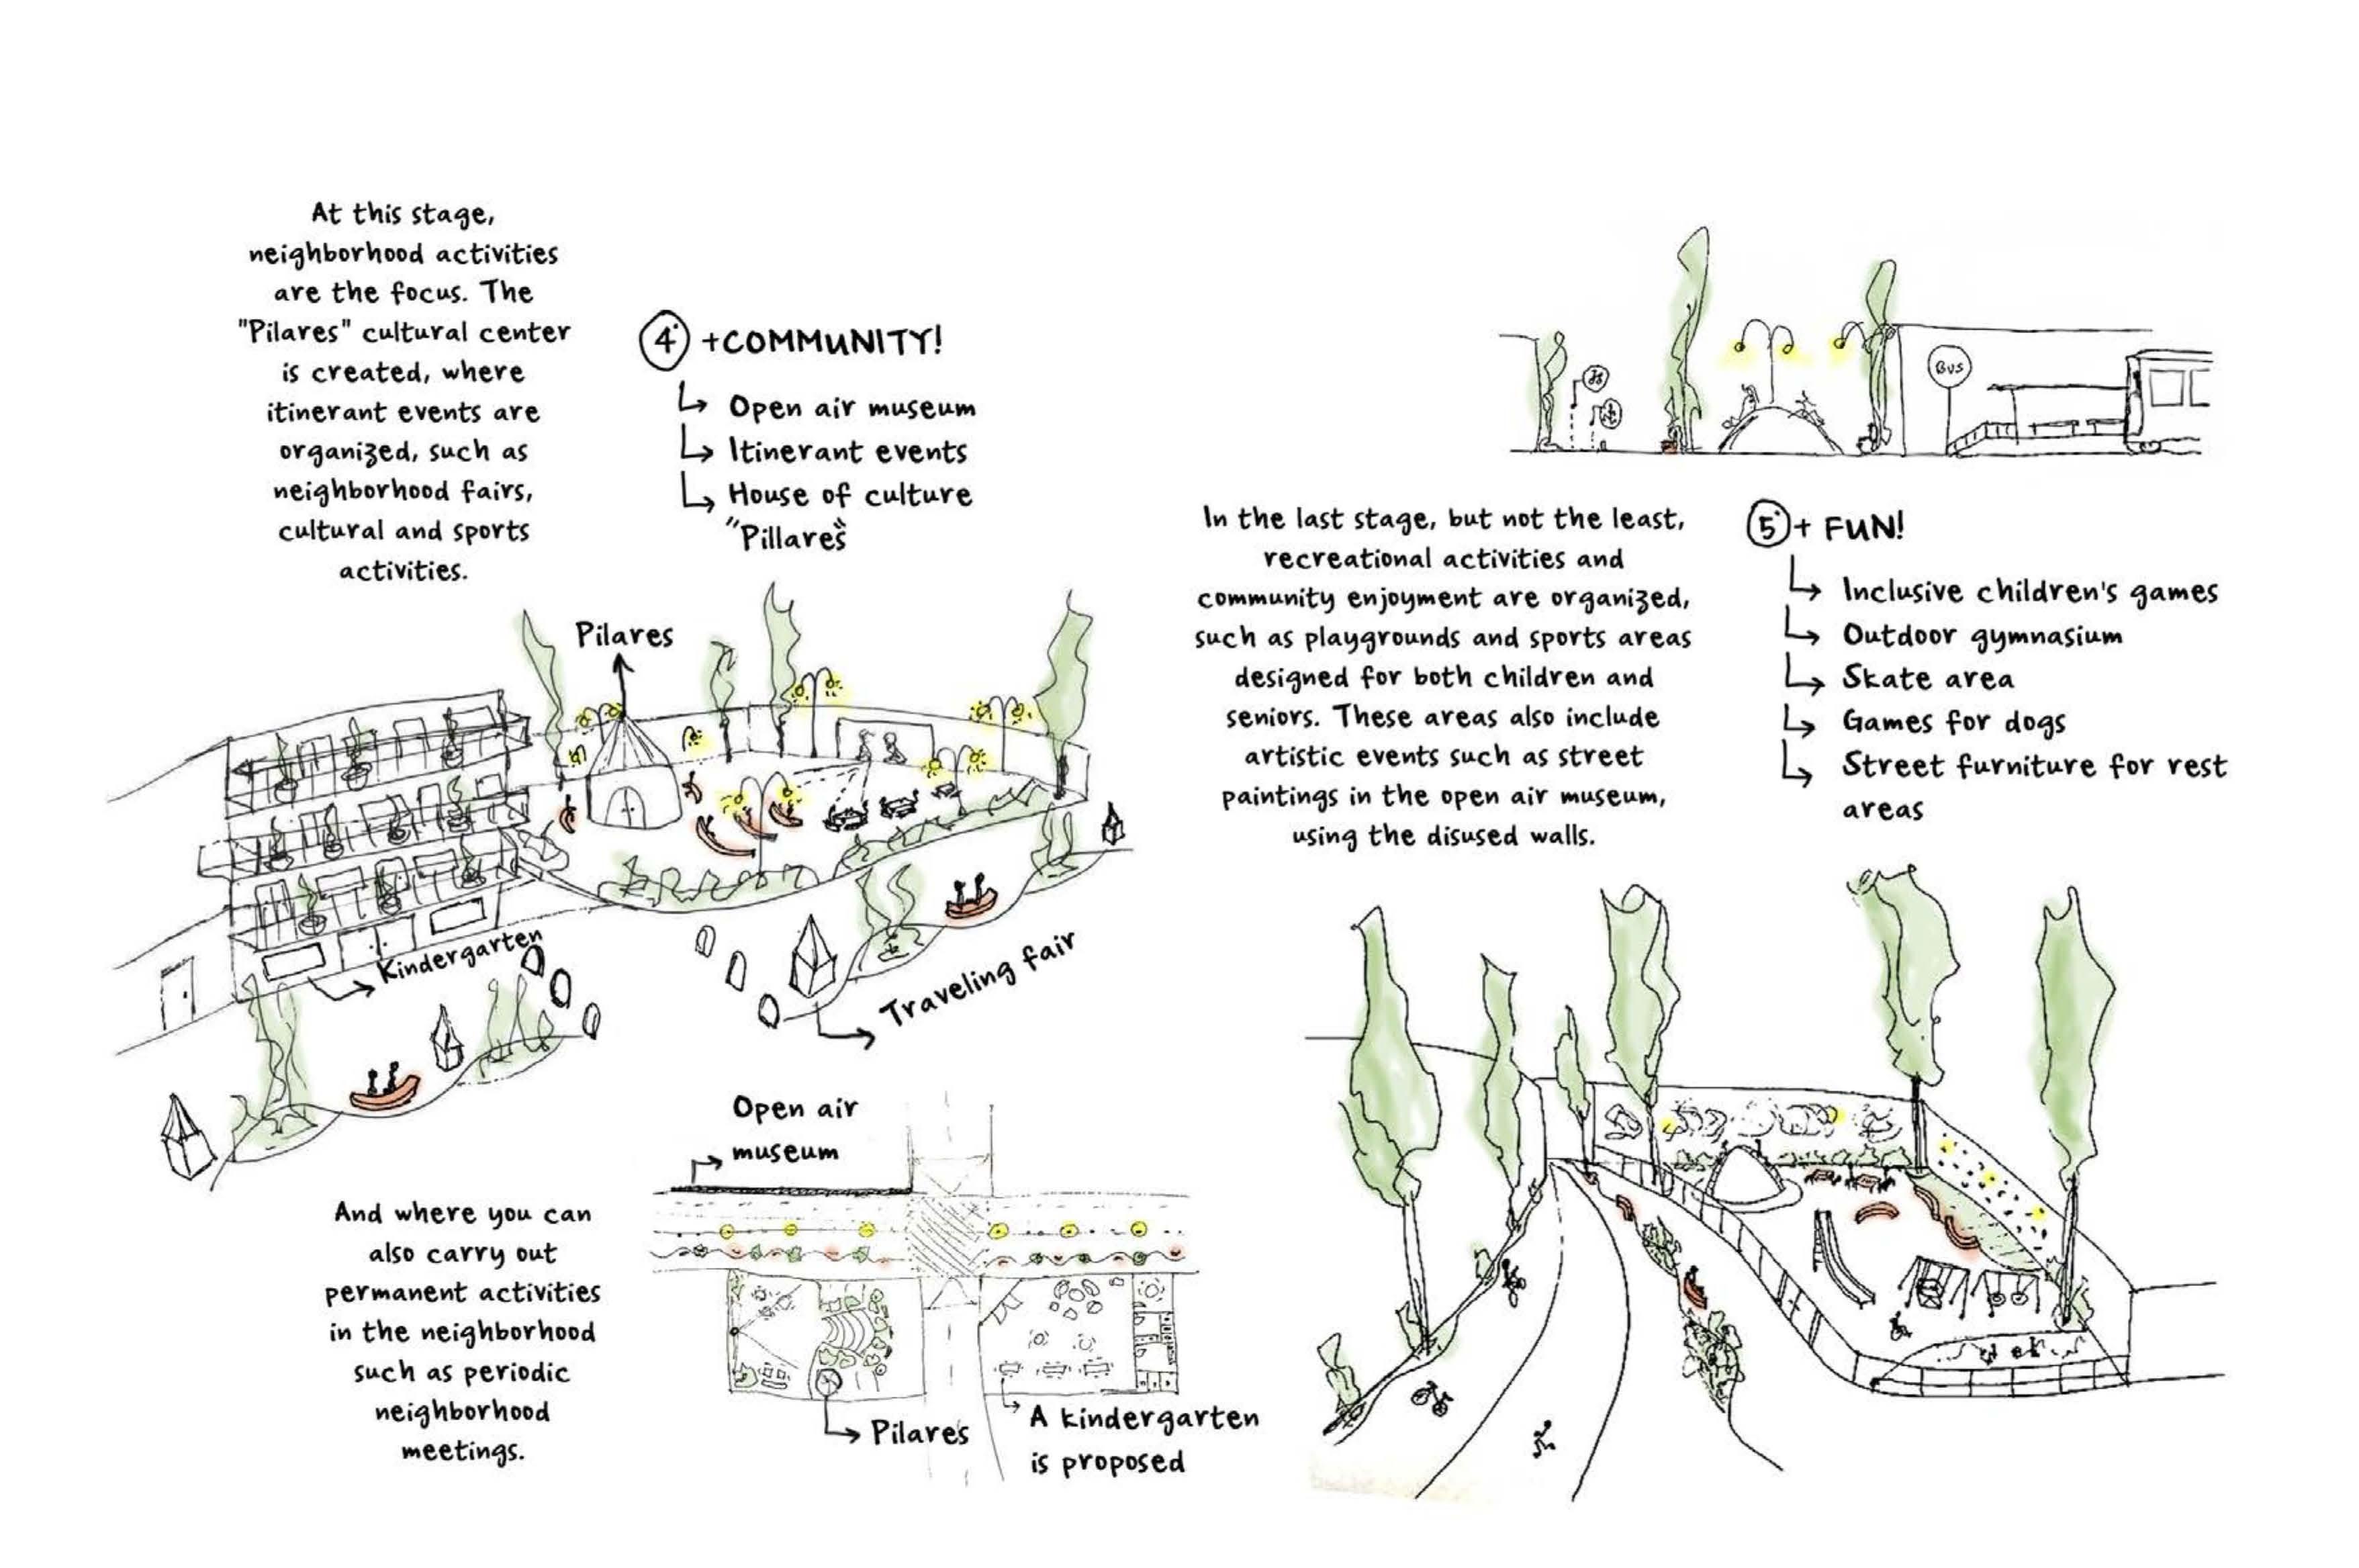 At this stage,
neighborhood activities
are the focus. The
"Pilares" cultural center
is created, where
itinerant events are
organized, such as
neighborhood fairs,
cultural and sports
activities.
4 +COMMUNITY!
Open air museum
Itinerant events
House of culture
"Pillares"
Pilares
Kindergarten
Traveling fair
And where you can
also carry out
permanent activities
in the neighborhood
such as periodic
neighborhood
meetings.
Open air
museum
Pilares
A kindergarten
is proposed
BUS
In the last stage, but not the least,
recreational activities and
community enjoyment are organized,
such as playgrounds and sports areas
designed for both children and
seniors. These areas also include
artistic events such as street
paintings in the open air museum,
using the disused walls.
5 + FUN!
Inclusive children's games
Outdoor gymnasium
Skate area
Games for dogs
Street furniture for rest
areas